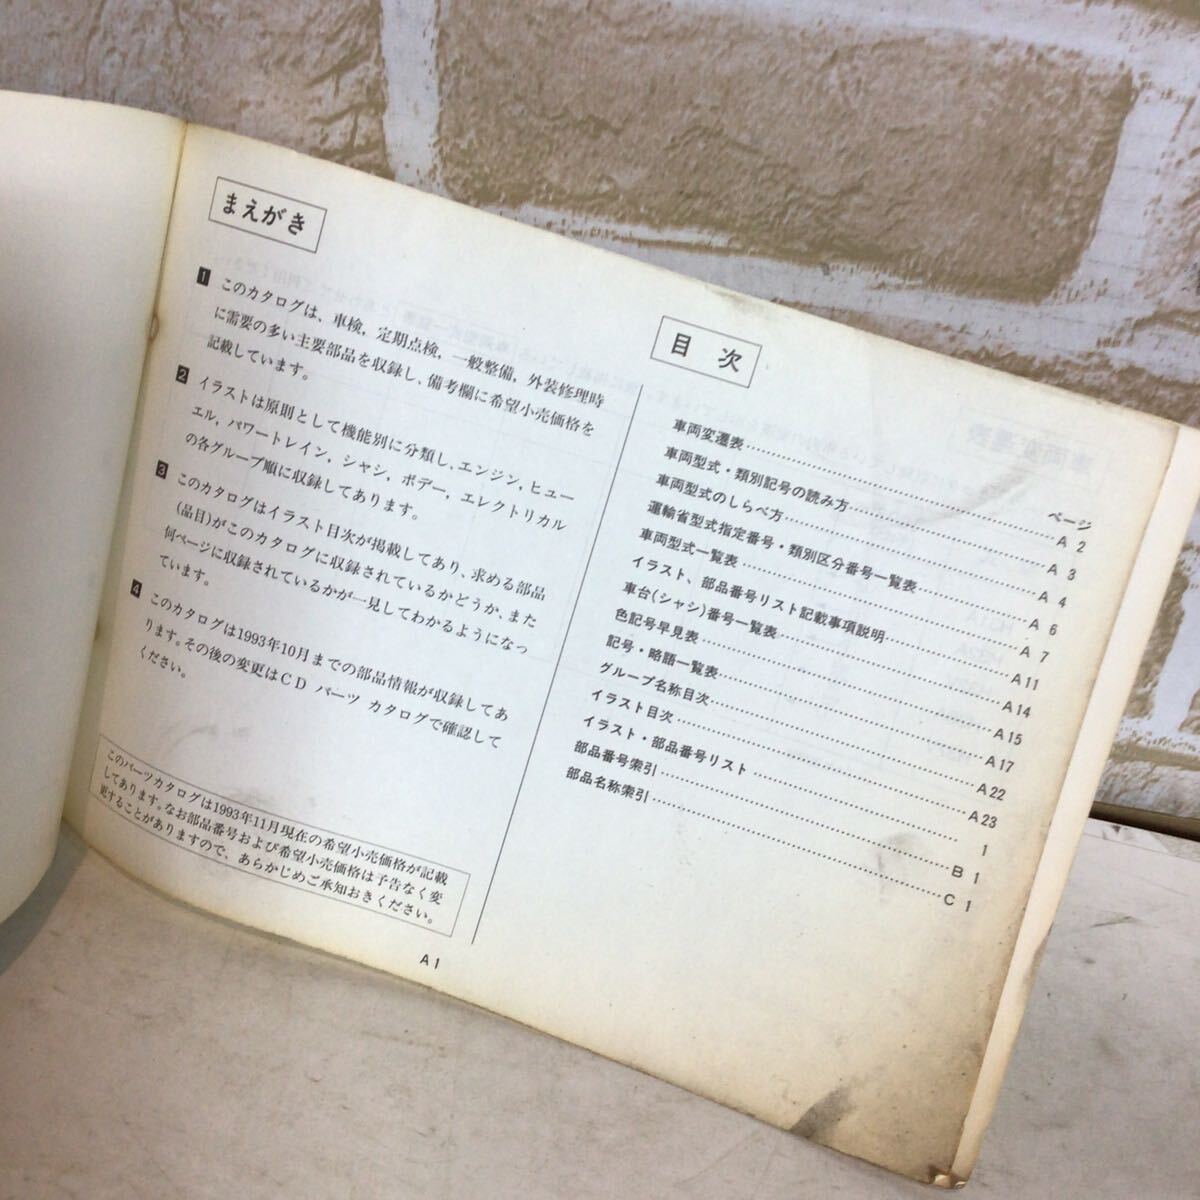 まえがき
1 このカタログは、車検，定期点検，一般整備，外装修理時
に需要の多い主要部品を収録し、備考欄に希望小売価格を
記載しています。
2 イラストは原則として機能別に分類し、エンジン，ヒュー
エル，パワートレイン，シャシ，ボデー，エレクトリカル
の各グループ順に収録してあります。
3 このカタログはイラスト目次が掲載してあり、求める部品
(品目)がこのカタログに収録されているかどうか、また
何ページに収録されているかが一見してわかるようになっ
ています。
4 このカタログは1993年10月までの部品情報が収録してあ
ります。その後の変更はCD パーツ カタログで確認して
ください。
このパーツカタログは1993年11月現在の希望小売価格が記載
してあります。なお部品番号および希望小売価格は予告なく変
更することがありますので、あらかじめご承知おきください。
目 次
ページ
車両変遷表 A 2
車両型式・類別記号の読み方 A 3
車両型式のしらべ方 A 4
運輸省型式指定番号・類別区分番号一覧表 A 6
車両型式一覧表 A 7
イラスト、部品番号リスト記載事項説明 A11
車台(シャシ)番号一覧表 A14
色記号早見表 A15
記号・略語一覧表 A17
グループ名称目次 A22
イラスト目次 A23
イラスト・部品番号リスト 1
部品番号索引 B 1
部品名称索引 C 1
A 1